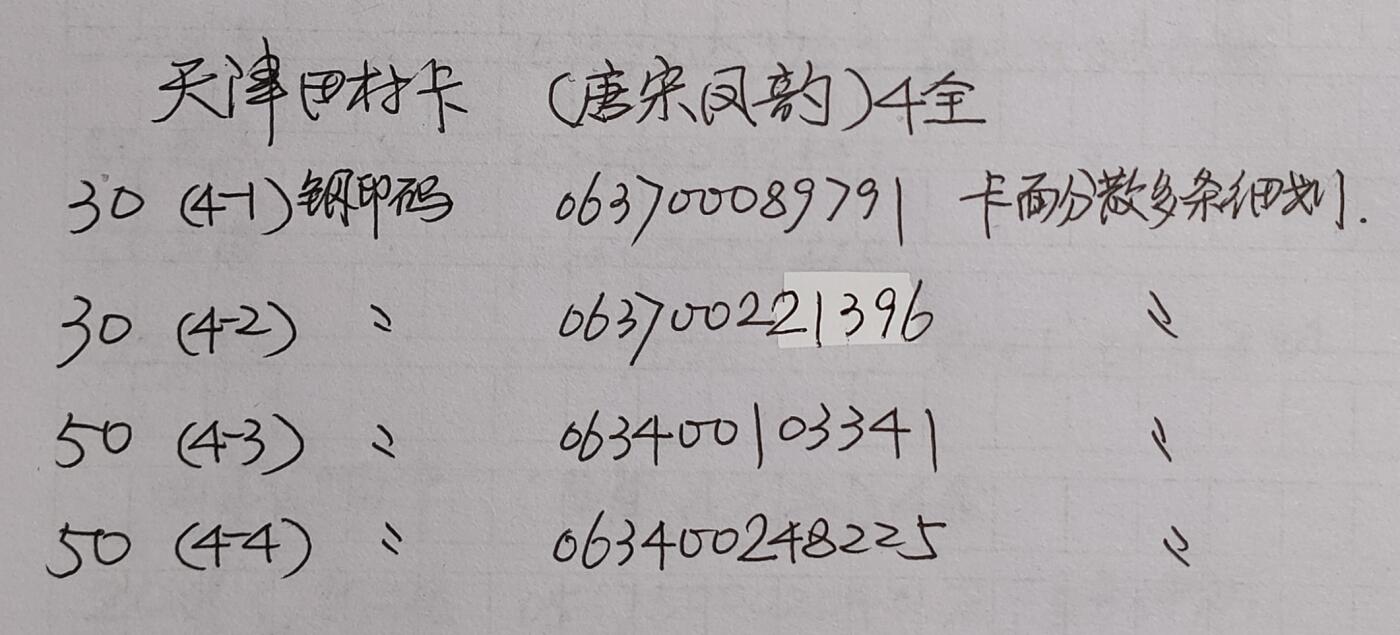 天津田村卡 (唐宋风韵)4全
30 (4-1)钢印码 063700089791 卡面分散多条细划.
30 (4-2) 〃 063700221396 〃
50 (4-3) 〃 063400103341 〃
50 (4-4) 〃 063400248225 〃